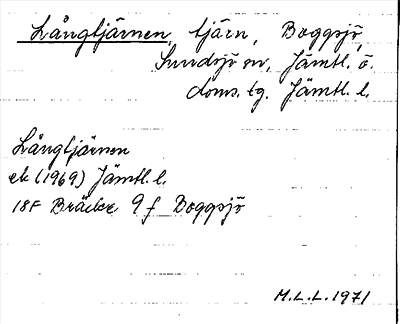 Långtjärnen, tjärn, Boggsjö,
Sundsjö sn, Jämtl. ö.
doms. tg. Jämtl. l.
Långtjärnen
ek (1969) Jämtl. l.
18F Bräcke 9 f Boggsjö
M.L.L. 1971